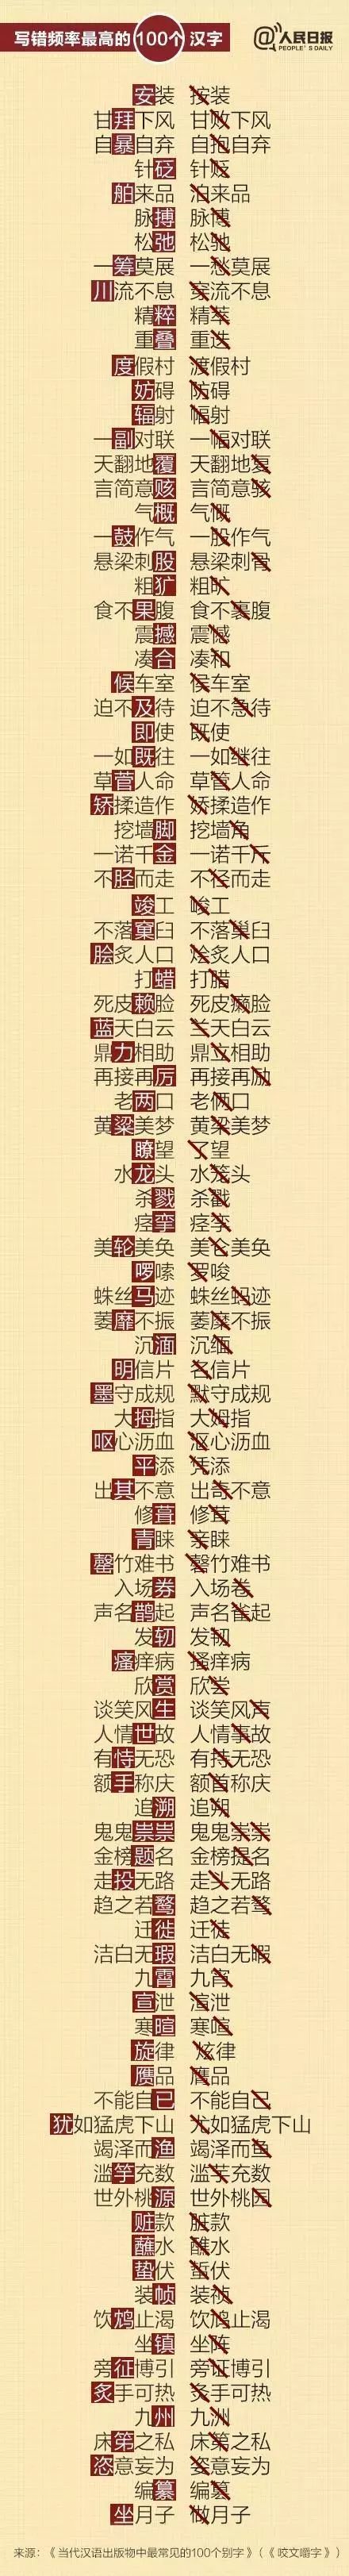 写错频率最高的100个汉字
@人民日报
PEOPLE'S DAILY
安装 按装
甘拜下风 甘败下风
自暴自弃 自抱自弃
针砭 针贬
舶来品 泊来品
脉搏 脉博
松弛 松驰
一筹莫展 一愁莫展
川流不息 穿流不息
精粹 精萃
重叠 重迭
度假村 渡假村
妨碍 防碍
辐射 幅射
一副对联 一幅对联
天翻地覆 天翻地复
言简意赅 言简意骇
气概 气慨
一鼓作气 一股作气
悬梁刺股 悬梁刺骨
粗犷 粗旷
食不果腹 食不裹腹
震撼 震憾
凑合 凑和
候车室 侯车室
迫不及待 迫不急待
即使 既使
一如既往 一如继往
草菅人命 草管人命
矫揉造作 娇揉造作
挖墙脚 挖墙角
一诺千金 一诺千斤
不胫而走 不径而走
竣工 峻工
不落窠臼 不落巢臼
脍炙人口 烩炙人口
打蜡 打腊
死皮赖脸 死皮癞脸
蓝天白云 兰天白云
鼎力相助 鼎立相助
再接再厉 再接再励
老两口 老俩口
黄粱美梦 黄梁美梦
瞭望 了望
水龙头 水笼头
杀戮 杀戳
痉挛 痉孪
美轮美奂 美仑美奂
啰嗦 罗唆
蛛丝马迹 蛛丝蚂迹
萎靡不振 萎糜不振
沉湎 沉缅
明信片 名信片
墨守成规 默守成规
大拇指 大姆指
呕心沥血 沤心沥血
平添 凭添
出其不意 出奇不意
修葺 修茸
青睐 亲睐
罄竹难书 磬竹难书
入场券 入场卷
声名鹊起 声名雀起
发轫 发韧
瘙痒病 搔痒病
欣赏 欣尝
谈笑风生 谈笑风声
人情世故 人情事故
有恃无恐 有持无恐
额手称庆 额首称庆
追溯 追朔
鬼鬼祟祟 鬼鬼崇崇
金榜题名 金榜提名
走投无路 走头无路
趋之若鹜 趋之若骛
迁徙 迁徒
洁白无瑕 洁白无暇
九霄 九宵
宣泄 渲泄
寒暄 寒喧
旋律 弦律
赝品 膺品
不能自已 不能自己
犹如猛虎下山 尤如猛虎下山
竭泽而渔 竭泽而鱼
滥竽充数 滥芋充数
世外桃源 世外桃园
赃款 脏款
蘸水 醮水
蛰伏 蜇伏
装帧 装祯
饮鸩止渴 饮鸠止渴
坐镇 坐阵
旁征博引 旁证博引
炙手可热 灸手可热
九州 九洲
床笫之私 床第之私
恣意妄为 姿意妄为
编纂 编篡
坐月子 做月子
来源：《当代汉语出版物中最常见的100个别字》（《咬文嚼字》）